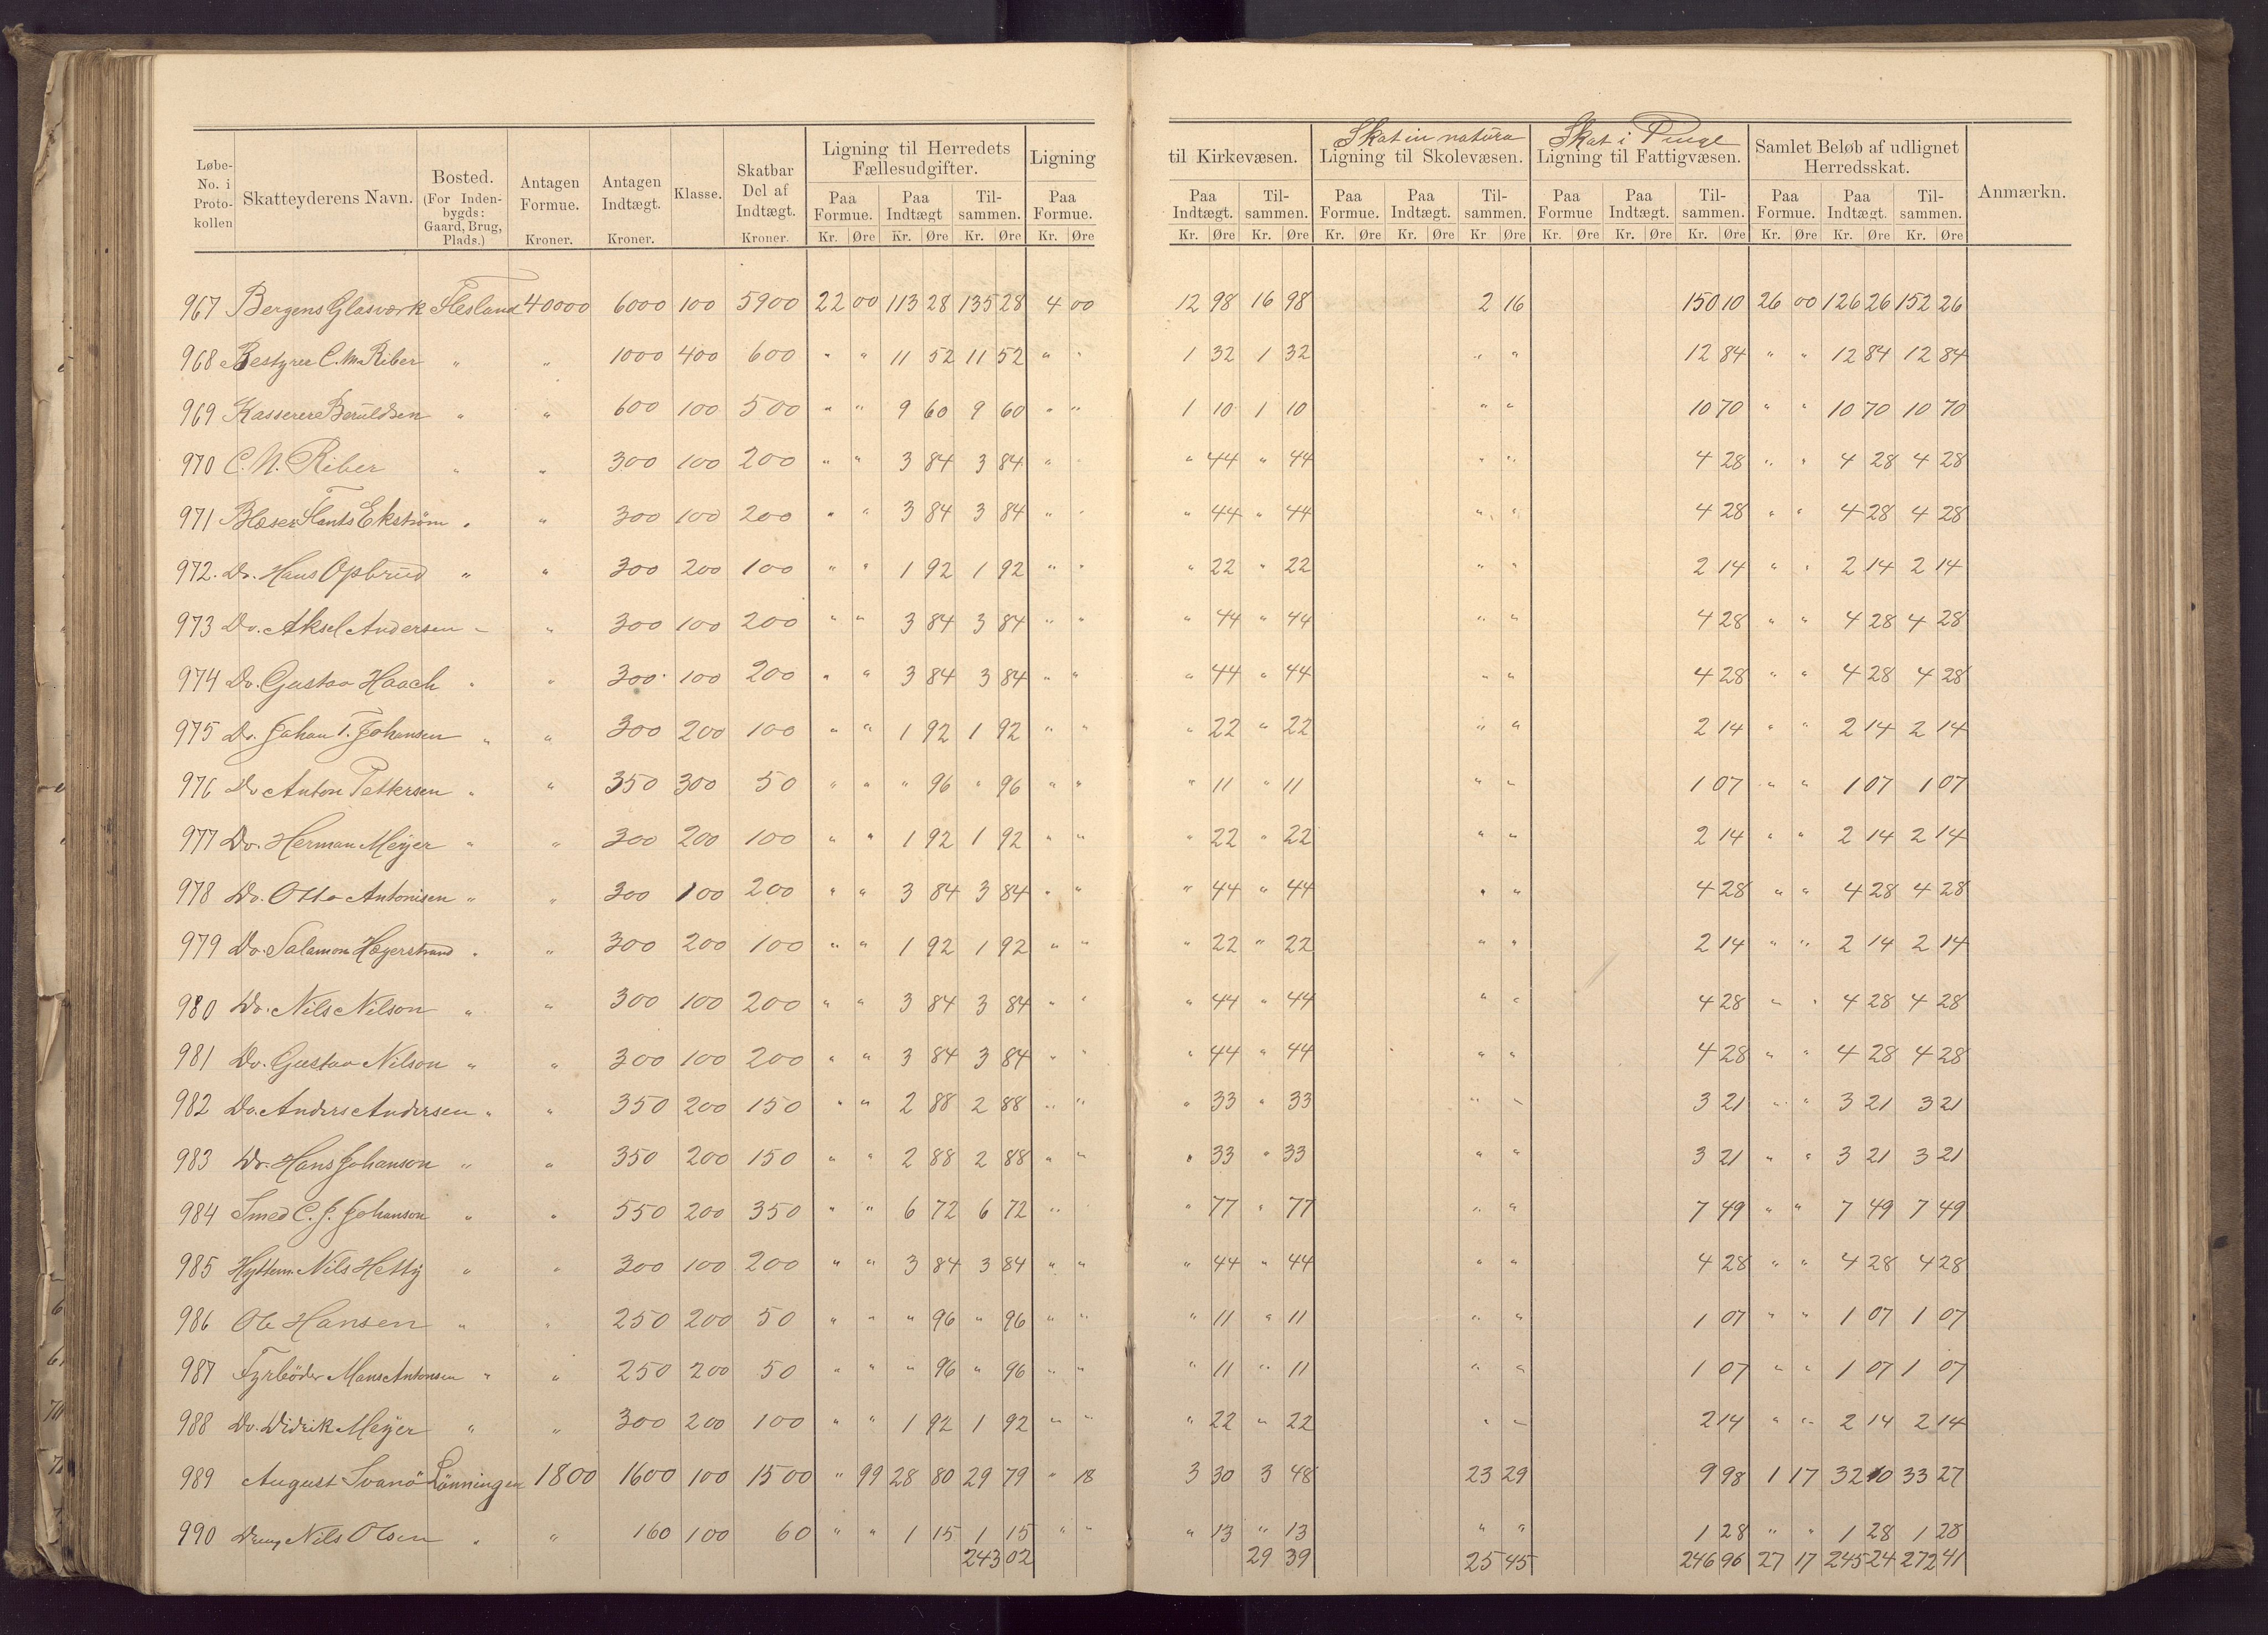 Løbe-No. i Proto-kollen | Skatteyderens Navn. | Bosted. (For Inden-bygds: Gaard, Brug, Plads.) | Antagen Formue. Kroner. | Antagen Indtægt. Kroner. | Klasse. | Skatbar Del af Indtægt. Kroner. | Ligning til Herredets Fællesudgifter. Paa Formue. Kr. Øre Paa Indtægt Kr. Øre Til-sammen. Kr. Øre | Ligning Paa Formue. Kr. Øre | til Kirkevæsen. Paa Indtægt. Kr. Øre Til-sammen. Kr. Øre | Skat in natura Ligning til Skolevæsen. Paa Formue. Kr. Øre Paa Indtægt. Kr. Øre Til-sammen. Kr Øre | Skat i Penge Ligning til Fattigvæsen. Paa Formue Kr. Øre Paa Indtægt. Kr. Øre Til-sammen. Kr. Øre | Samlet Beløb af udlignet Herredsskat. Paa Formue. Kr. Øre Paa Indtægt. Kr. Øre Til-sammen. Kr. Øre | Anmærkn.
967 Bergens Glasværk Flesland 40000 6000 100 5900 22 00 113 28 135 28 4 00 12 98 16 98 2 16 150 10 26 00 126 26 152 26
968 Bestyrer C. M. Riber " " 1000 400 600 " " 11 52 11 52 " " 1 32 1 32 " " 12 84 " " 12 84 12 84
969 Kasserer Beruldsen " " 600 100 500 " " 9 60 9 60 " " 1 10 1 10 " " 10 70 " " 10 70 10 70
970 C. N. Riber " " 300 100 200 " " 3 84 3 84 " " 44 " 44 " " 4 28 " " 4 28 4 28
971 Blæser Ekstrøm " " 300 100 200 " " 3 84 3 84 " " " 44 " 44 " " 4 28 " " 4 28 4 28
972. Do. Hans Opbrud " " 300 200 100 " " 1 92 1 92 " " " 22 " 22 " " 2 14 " " 2 14 2 14
973 Do. Aksel Andersen " " 300 100 200 " " 3 84 3 84 " " " 44 " 44 " " 4 28 " " 4 28 4 28
974 Do. Gustav Haach " " 300 100 200 " " 3 84 3 84 " " " 44 " 44 " " 4 28 " " 4 28 4 28
975 Do. Johan T. Johansen " " 300 200 100 " " 1 92 1 92 " " " 22 " 22 " " 2 14 " " 2 14 2 14
976 Do Anton Pettersen " " 350 300 50 " " " 96 " 96 " " " 11 " 11 " " 1 07 " " 1 07 1 07
977 Do. Herman Meyer " " 300 200 100 " " 1 92 1 92 " " " 22 " 22 " " 2 14 " " 2 14 2 14
978 Do. Otto Antonisen " " 300 100 200 " " 3 84 3 84 " " " 44 " 44 " " 4 28 " " 4 28 4 28
979 Do. Salamon Hægerstrand " " 300 200 100 " " 1 92 1 92 " " " 22 " 22 " " 2 14 " " 2 14 2 14
980 Do. Nils Nilson " " 300 100 200 " " 3 84 3 84 " " " 44 " 44 " " 4 28 " " 4 28 4 28
981 Do. Gustav Nilson " " 300 100 200 " " 3 84 3 84 " " " 44 " 44 " " 4 28 " " 4 28 4 28
982 Do. Anders Andersen " " 350 200 150 " " 2 88 2 88 " " " 33 " 33 " " 3 21 " " 3 21 3 21
983 Do. Hans Johanson " " 350 200 150 " " 2 88 2 88 " " " 33 " 33 " " 3 21 " " 3 21 3 21
984 Smed C. J. Johanson " " 550 200 350 " " 6 72 6 72 " " 77 " 77 " " 7 49 " " 7 49 7 49
985 Hyttem. Nils Hetty " " 300 100 200 " " 3 84 3 84 " " " 44 " 44 " " 4 28 " " 4 28 4 28
986 Ole Hansen " " 250 200 50 " " " 96 " 96 " " " 11 " 11 " " 1 07 " " 1 07 1 07
987 Fyrbøder Mans Antonsen " " 250 200 50 " " " 96 " 96 " " " 11 " 11 " " 1 07 " " 1 07 1 07
988 Do. Didrik Meyer " " 300 200 100 " " 1 92 1 92 " " " 22 " 22 " " 2 14 " " 2 14 2 14
989 August Svanö Lønningen 1800 1600 100 1500 " 99 28 80 29 79 " 18 3 30 3 48 23 29 9 98 1 17 32 10 33 27
990 Dreng Nils Olsen " " 160 100 60 " " 1 15 1 15 " " " 13 " 13 " " 1 28 " " 1 28 1 28
243 02 29 39 25 45 246 96 27 17 245 24 272 41